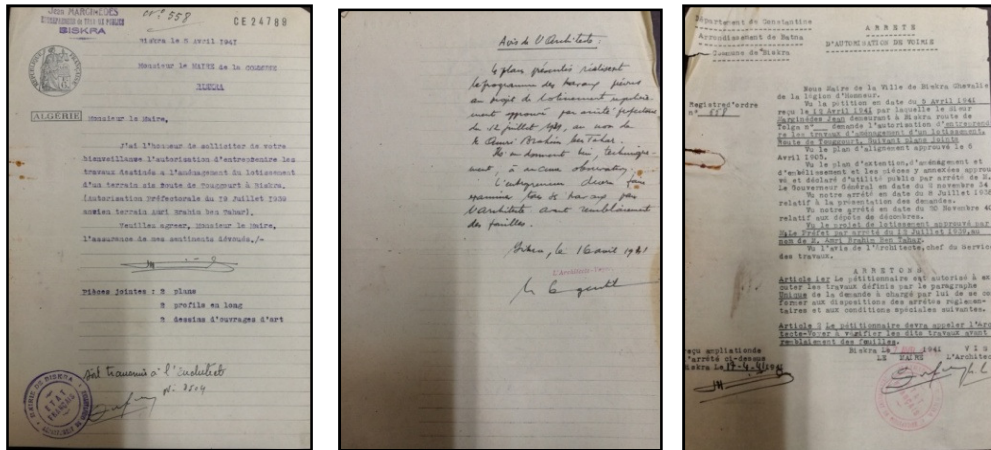 Jean MARGINEDES
ENTREPRENEUR DE TRAVAUX PUBLICS
BISKRA
N° 558
CE 24789
Biskra le 5 Avril 1941
Monsieur le MAIRE de la COMMUNE
BISKRA
ALGERIE
Monsieur le Maire,
J'ai l'honneur de solliciter de votre
bienveillance l'autorisation d'entreprendre les
travaux destinés à l'aménagement du lotissement
d'un terrain sis Route de Touggourt à Biskra.
(Autorisation Préfectorale du 12 Juillet 1939
ancien terrain Amri Brahim ben Tahar).
Veuillez agréer, Monsieur le Maire,
l'assurance de mes sentiments dévoués,/-
Pièces jointes : 2 plans
2 profils en long
2 dessins d'ouvrages d'art
Soit transmis à l'Architecte
MAIRIE DE BISKRA
ETAT
FRANÇAIS
Avis de l'Architecte :
Le plan présentés réalisent
le programme des travaux prévus
au projet de lotissement
approuvé par arrêté préfectoral
du 12 juillet 1939, au nom de
M. Amri Brahim ben Tahar.
Ils ne donnent lieu,
à aucune observation,
L'entrepreneur devra faire
examiner tous les travaux par
l'Architecte avant remblaiement
des fouilles.
Biskra, le 16 avril 1941
Département de Constantine
Arrondissement de Batna
Commune de Biskra
ARRETE
D'AUTORISATION DE VOIRIE
Registre d'ordre
n° 558
Nous Maire de la Ville de Biskra Chevalier
de la Légion d'Honneur.
Vu la pétition en date du 5 Avril 1941
reçu le 12 Avril 1941 par laquelle le Sieur
Marginédès Jean demeurant à Biskra route de
Tolga n° demande l'autorisation d'entreprendre
les travaux d'aménagement d'un lotissement,
Route de Touggourt, Suivant plans joints
Vu le plan d'alignement approuvé le 6
Avril 1905.
Vu le plan d'extention, d'aménagement et
d'embellissement et les pièces y annexées approu-
vé et déclaré d'utilité public par arrêté de M.
Le Gouverneur Général en date du 9 novembre 34
Vu notre arrêté en date du 8 Juillet 1938
relatif à la présentation des demandes.
Vu notre arrêté en date du 22 Novembre 40
relatif aux dépôts de décombres.
Vu le projet de lotissement approuvé par
M. le Préfet par arrêté du 12 Juillet 1939, au
nom de M. Amri Brahim Ben Tahar.
Vu l'avis de l'Architecte, chef du service
des travaux.
ARRETONS
Article 1er Le pétitionnaire est autorisé à exé
cuter les travaux définis par le paragraphe
Unique de la demande à charge par lui de se con
former aux dispositions des arrêtés réglemen-
taires et aux conditions spéciales suivantes.
Article 2 Le pétitionnaire devra appeler l'Arc
tecte-Voyer à vérifier les dits travaux avant
remblaiement des fouilles.
Biskra le 1941
LE MAIRE
L'Architec
reçu ampliation de
l'arrêté ci-dessus
Biskra le 17-4-41